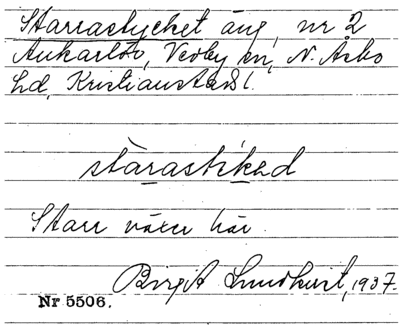 Starrastycket äng, nr 2
Ankarlöv, Verby sn, N. Åsbo
hd, Kristianstads l.
stàrastíked
Starr växer här.
Birgit Lundkvist, 1937.
Nr 5506.